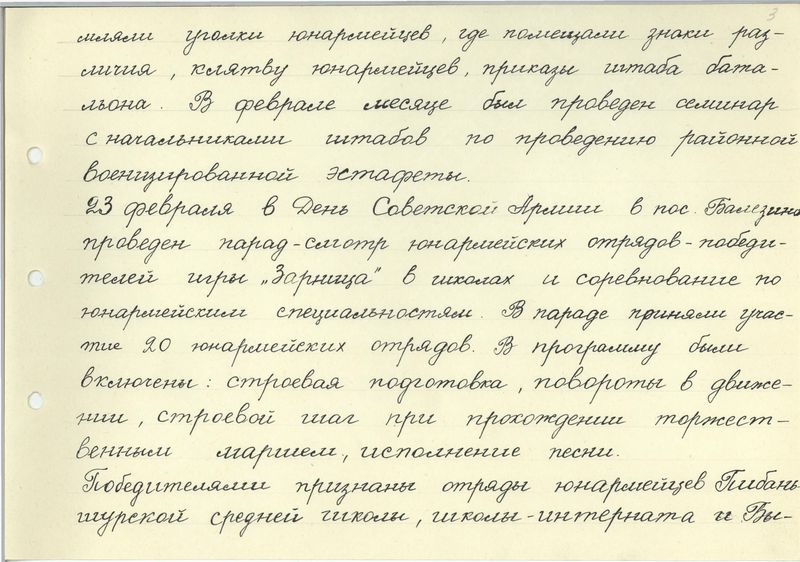 3
мляли уголки юнармейцев, где помещали знаки раз-
личия, клятву юнармейцев, приказы штаба бата-
льона. В феврале месяце был проведен семинар
с начальниками штабов по проведению районной
военизированной эстафеты.
23 февраля в День Советской Армии в пос. Балезино
проведен парад-смотр юнармейских отрядов-победи-
телей игры „Зарница" в школах и соревнование по
юнармейским специальностям. В параде приняли учас-
тие 20 юнармейских отрядов. В программу были
включены: строевая подготовка, повороты в движе-
нии, строевой шаг при прохождении торжест-
венным маршем, исполнение песни.
Победителями признаны отряды юнармейцев Пибань-
шурской средней школы, школы-интерната и Вы-